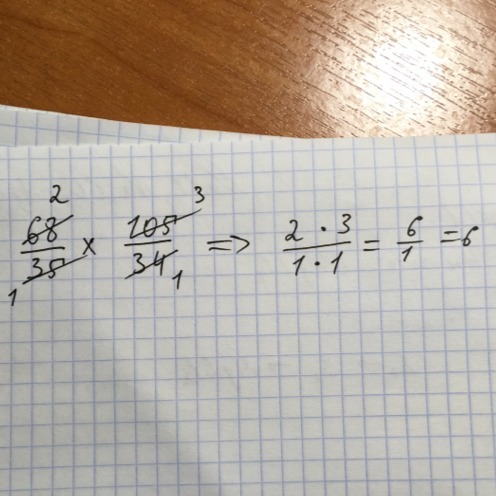 2 3
68/35 x 105/34 => 2 · 3/1 · 1 = 6/1 = 6
1 1